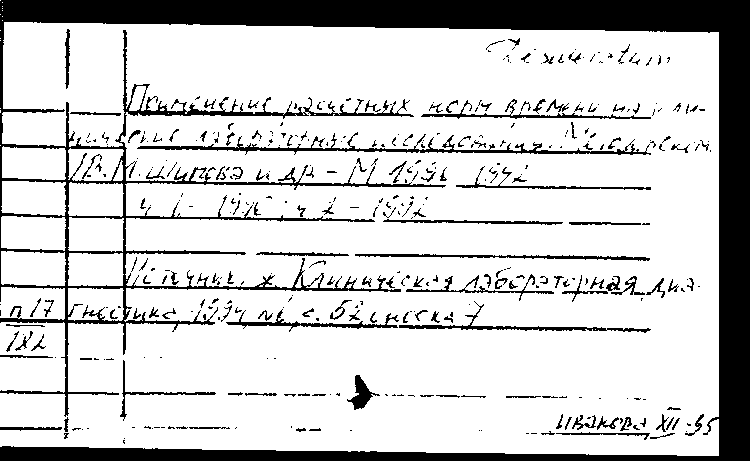 Desideratum
Применение расчетных норм времени на кли-
нические лабораторные исследования. Метод. реком.
/В.М. Шипова и др - М 1992
ч 1. - ; ч 2 - 1992
Источник. ж. Клиническая лабораторная диа-
п 17 гностика, 1994, с. 52, сноска 7
182
Иванова XII-95